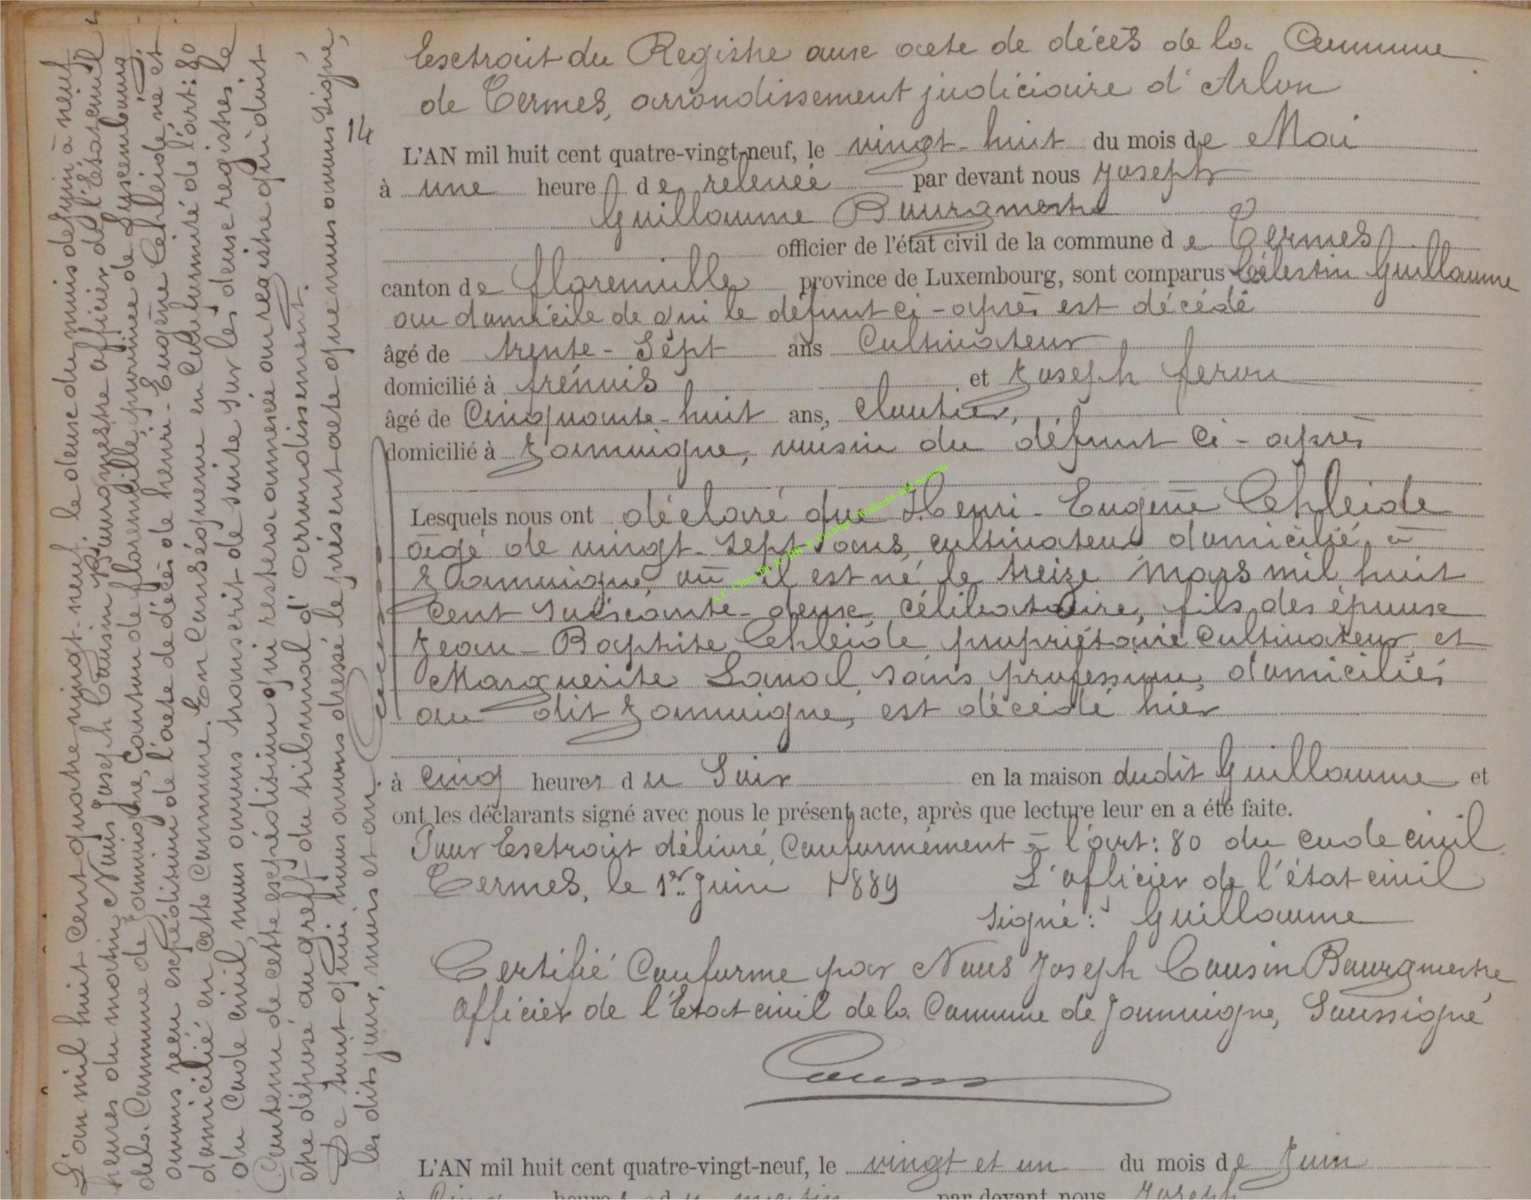 Esctrait du Registre ause acte de décès de la Commune
de Termes, arrondissement judiciaire d'Arlon
14
L'AN mil huit cent quatre-vingt-neuf, le vingt-huit du mois de Mai
à une heure de relevée par devant nous Joseph
Guillaume Bourgmestre
officier de l'état civil de la commune de Termes
canton de florenville province de Luxembourg, sont comparus Célestin Guillaume
au domicile de qui le défunt ci-après est décédé
âgé de trente-sept ans Cultivateur
domicilié à frénois et Joseph feron
âgé de Cinquante-huit ans, cloutier,
domicilié à Jamoigne, voisin du défunt ci-après
Lesquels nous ont déclaré que Henri-Eugène Cehleide
âgé de vingt-sept ans, cultivateur domicilié à
Jamoigne, où il est né le treize Mars mil huit
cent soiscante-deuse, célibataire, fils des épouse
Jean-Baptiste Cehleide propriétaire cultivateur et
Marguerite Lanoel sans profession, domiciliés
au dit Jamoigne, est décédé hier
à cinq heures du Soir en la maison dudit Guillaume et
ont les déclarants signé avec nous le présent acte, après que lecture leur en a été faite.
Pour Esctrait délivré, Conformément à l'art: 80 du code civil
Termes, le 1er Juin 1889 L'officier de l'état civil
signé: Guillaume
Certifié Conforme par Nous Joseph Cousin Bourgmestre
officier de l'Etat civil de la Commune de Jamoigne, Soussigné
Cousin
L'an mil huit cent quatre vingt-neuf le deuse du mois de Juin à neuf
heures du matin, Nous Joseph Cousin Bourgmestre officier de l'Etat civil
de la Commune de Jamoigne, Canton de florenville, province de Luxembourg,
avons reçu escpédition de l'acte de décès de henri-Eugène Cehleide né et
domicilié en cette Commune. En Conséquence en Conformité de l'art: 80
du Code civil, nous avons transcrit de suite sur les deuse registres le
Contenu de cette escpédition qui restera annescée au registre qui doit
être déposé au greffe du tribunal d'arrondissement.
De tout quoi nous avons dressé le présent acte que nous avons signé,
les dits jour, mois et an.
L'AN mil huit cent quatre-vingt-neuf, le vingt et un du mois de Juin
à heures du matin par devant nous Joseph